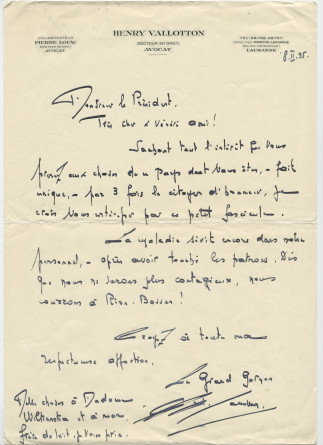 COLLABORATEUR
PIERRE LOEW
DOCTEUR EN DROIT
AVOCAT
HENRY VALLOTTON
DOCTEUR EN DROIT
AVOCAT
LAUSANNE
8.II.35.
Monsieur le Président,
Très cher & Vénéré ami!
Sachant tout l'intérêt que Vous
prenez aux choses du pays dont Vous êtes, - fait
unique, - par 3 fois le citoyen d'honneur, je
crois Vous intéresser par ce petit fascicule.
La maladie sévit encore dans notre
personnel, - après avoir touché les patrons. Dès
que nous ne serons plus contagieux, nous
courrons à Riond-Bosson!
Croyez à toute ma
respectueuse affection.
Le Grand Garçon
choses à Madame
Wilkonska et à mon
frère de lait, je Vous prie.